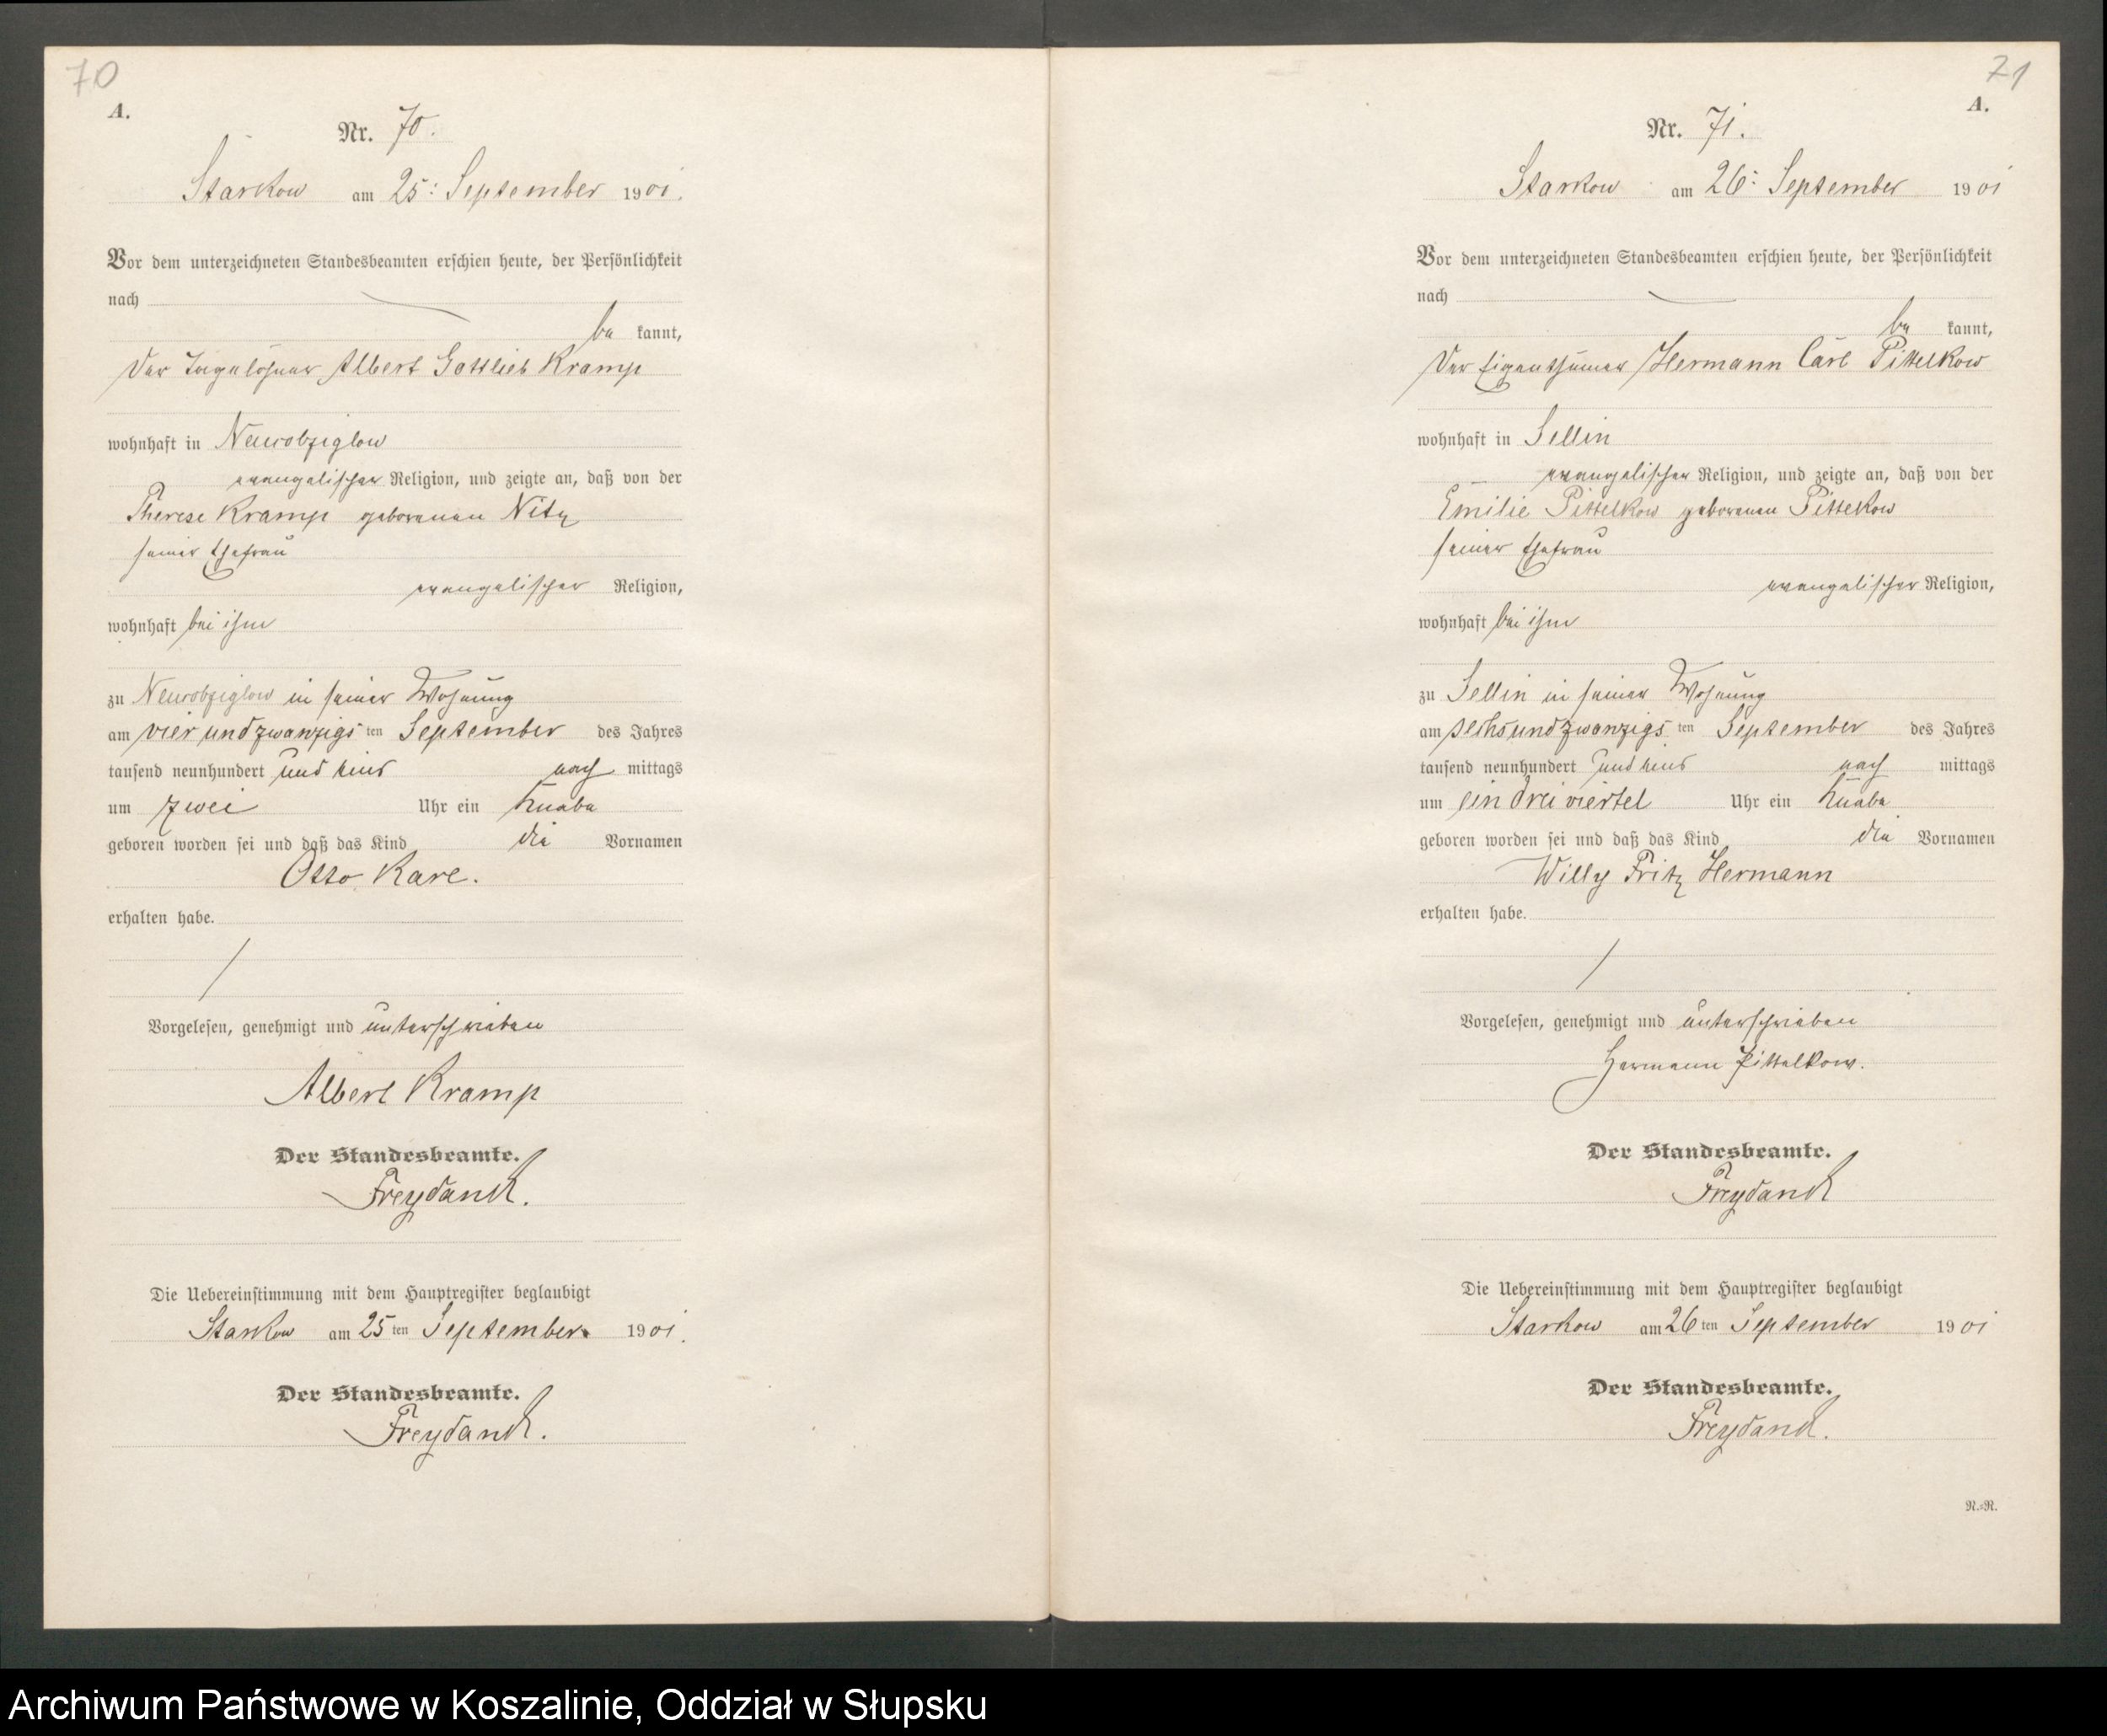 70
A.
Nr. 70.
Starkow am 25: September 1901.
Vor dem unterzeichneten Standesbeamten erschien heute, der Persönlichkeit
nach
be kannt,
Der Tagelöhner Albert Gottlieb Kramp
wohnhaft in Neurobziglow
evangelischer Religion, und zeigte an, daß von der
Therese Kramp geborenen Nitz
seiner Ehefrau
evangelischer Religion,
wohnhaft bei ihm
zu Neurobziglow in seiner Wohnung
am vier und zwanzigs ten September des Jahres
tausend neunhundert und eins nach mittags
um zwei Uhr ein Knabe
geboren worden sei und daß das Kind die Vornamen
Otto Karl.
erhalten habe.
Vorgelesen, genehmigt und unterschrieben
Albert Kramp
Der Standesbeamte.
Freydanck.
Die Uebereinstimmung mit dem Hauptregister beglaubigt
Starkow am 25 ten September 1901.
Der Standesbeamte.
Freydanck.
71
A.
Nr. 71.
Starkow am 26: September 1901
Vor dem unterzeichneten Standesbeamten erschien heute, der Persönlichkeit
nach
be kannt,
Der Eigenthümer Hermann Carl Pittelkow
wohnhaft in Sellin
evangelischer Religion, und zeigte an, daß von der
Emilie Pittelkow geborenen Pittelkow
seiner Ehefrau
evangelischer Religion,
wohnhaft bei ihm
zu Sellin in seiner Wohnung
am sechsundzwanzigs ten September des Jahres
tausend neunhundert und eins nach mittags
um ein dreiviertel Uhr ein Knabe
geboren worden sei und daß das Kind die Vornamen
Willy Fritz Hermann
erhalten habe.
Vorgelesen, genehmigt und unterschrieben
Hermann Pittelkow.
Der Standesbeamte.
Freydanck
Die Uebereinstimmung mit dem Hauptregister beglaubigt
Starkow am 26 ten September 1901
Der Standesbeamte.
Freydanck.
N.=R.
Archiwum Państwowe w Koszalinie, Oddział w Słupsku